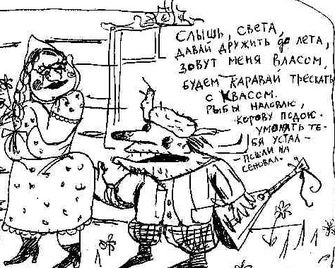 СЛЫШЬ, СВЕТА,
ДАВАЙ ДРУЖИТЬ до ЛЕТА,
ЗОВУТ МЕНЯ ВЛАСОМ,
БУДЕМ КАРАВАЙ ТРЕСКАТЬ
С КВАСОМ.
РЫБЫ НАЛОВЛЮ,
КОРОВУ ПОДОЮ.
УМОЛЯТЬ ТЕ-
БЯ УСТАЛ -
ПОШЛИ НА
СЕНОВАЛ.